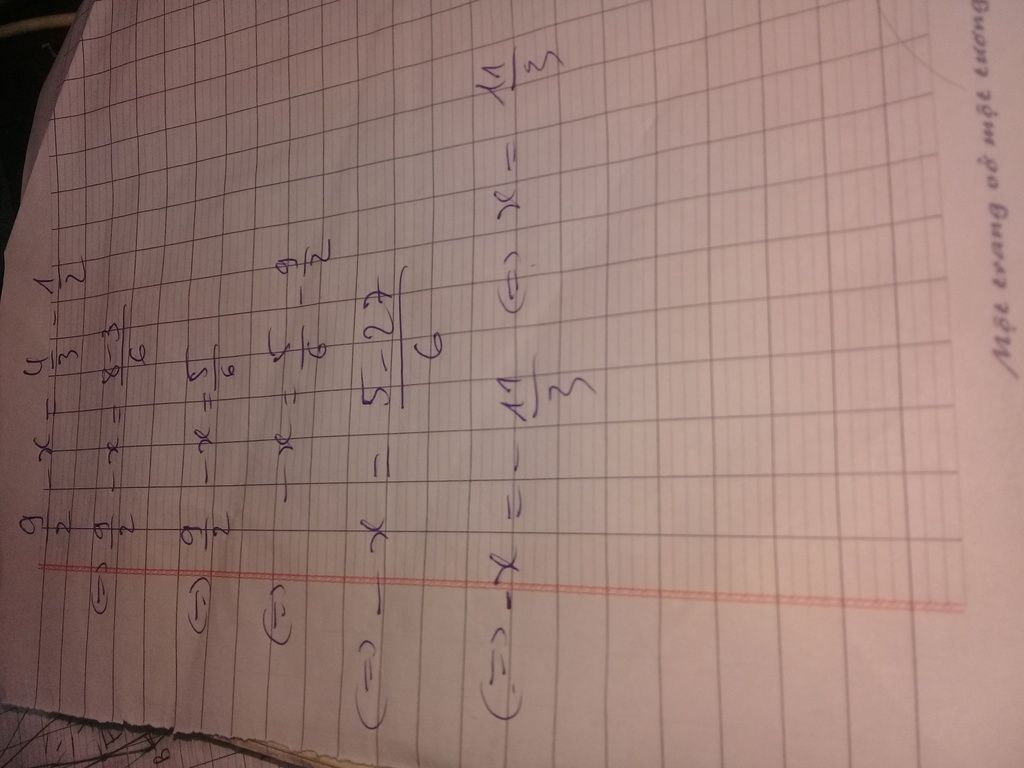 9/2 - x = 4/3 - 1/2
(=) 9/2 - x = 8-3/6
(=) 9/2 - x = 5/6
(=) - x = 5/6 - 9/2
(=> - x = 5-27/6
(=> - x = - 11/3 (=) x = 11/3
Một trang vở một tương